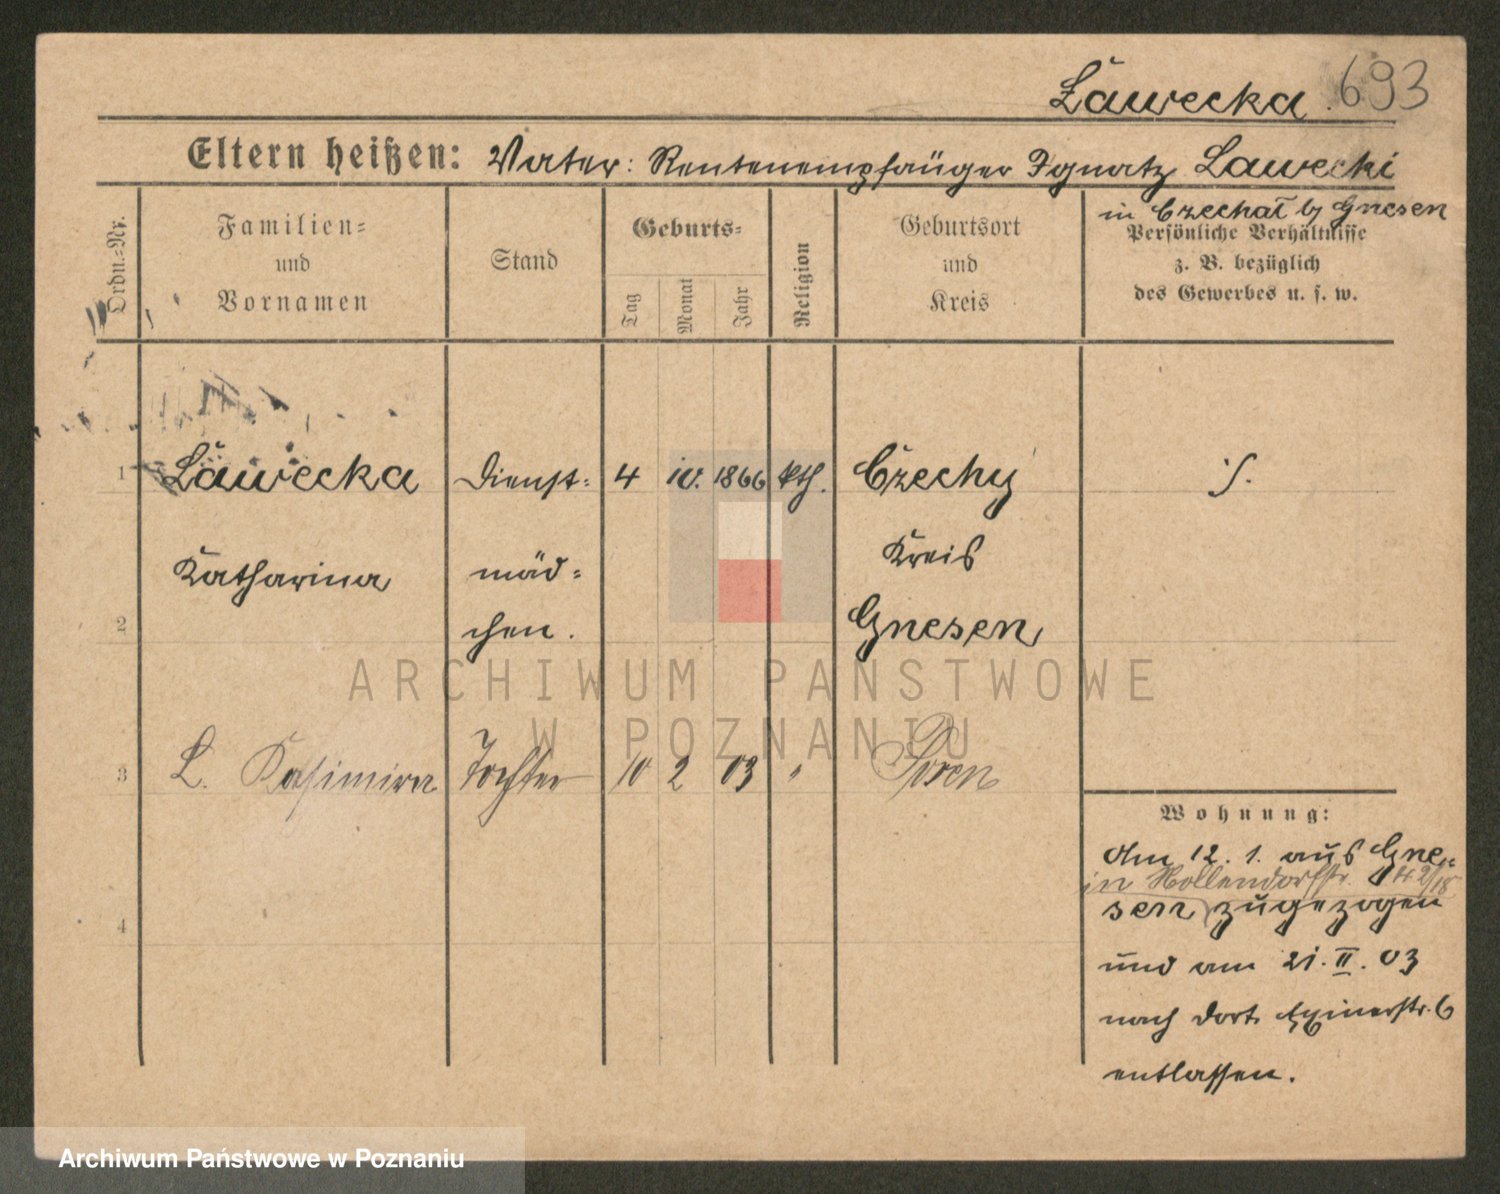 Ławecka. 693
Eltern heißen: Vater: Rentenempfänger Ignatz Lawecki
in Czechat b/ Gnesen
Ordn.=Nr.
Familien=
und
Vornamen
Stand
Geburts=
Tag
Monat
Jahr
Religion
Geburtsort
und
Kreis
Persönliche Verhältnisse
z. B. bezüglich
des Gewerbes u. s. w.
1 Ławecka Dienst= 4 10. 1866 kth. Czechy
Katharina mäd= Kreis
2 chen. Gnesen
ARCHIWUM PAŃSTWOWE
W POZNANIU
3 L. Kasimira Tochter 10 2 03 " Posen
Wohnung:
Am 12. 1. aus Gne=
in Hollendorfstr.
sen zugezogen
4
und am 21. II. 03
nach dort
entlassen.
Archiwum Państwowe w Poznaniu